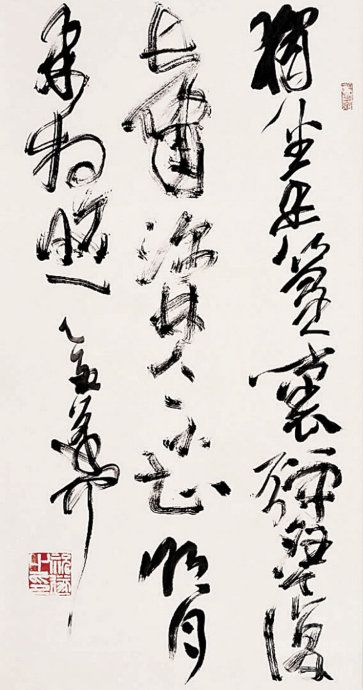 獨坐幽篁裏彈琴復
長嘯深林人不知明月
来相照